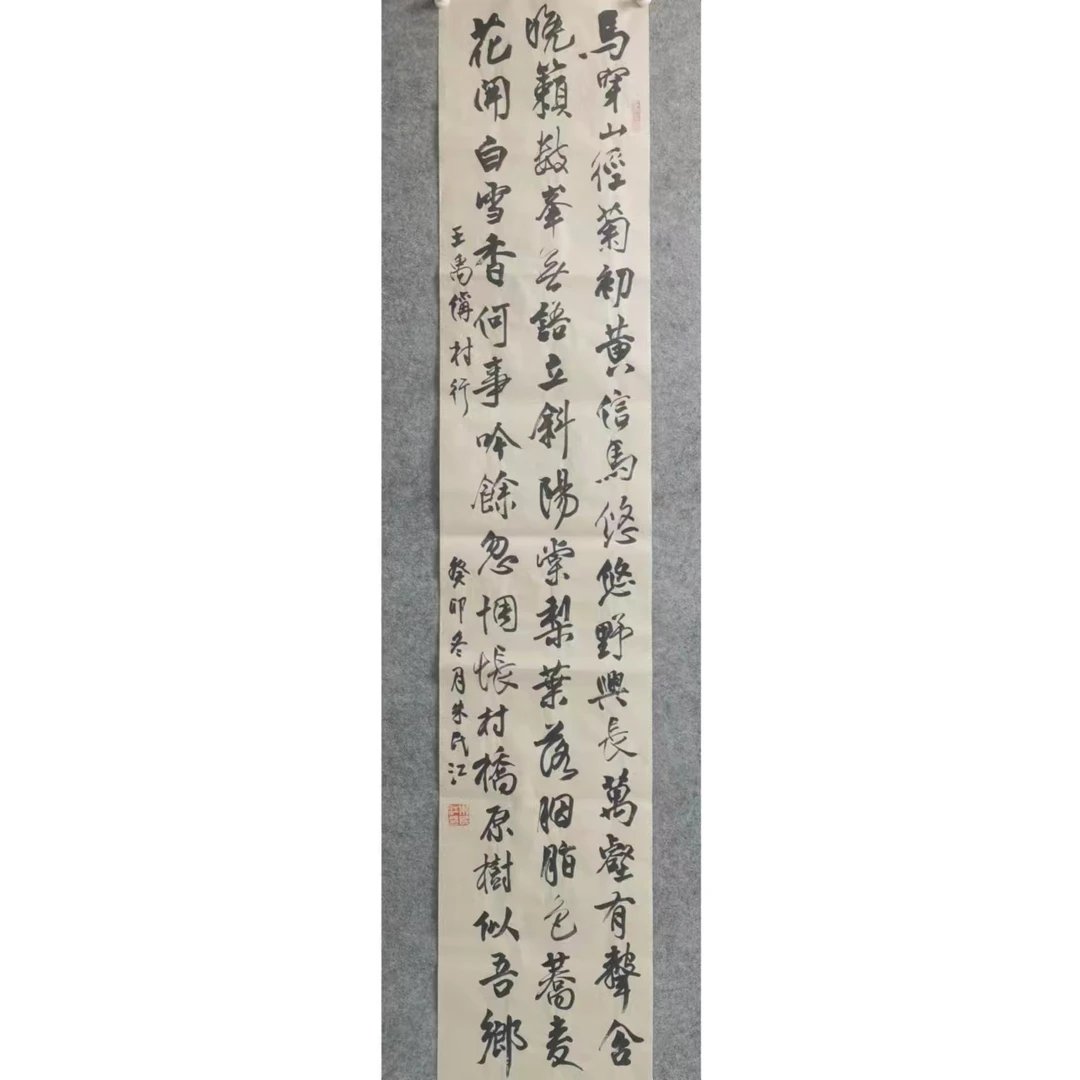 馬穿山徑菊初黃信馬悠悠野興長萬壑有聲含
晚籟數峯無語立斜陽棠梨葉落胭脂色蕎麦
花開白雪香何事吟餘忽惆悵村橋原樹似吾鄉
王禹偁村行
癸卯冬月朱氏江